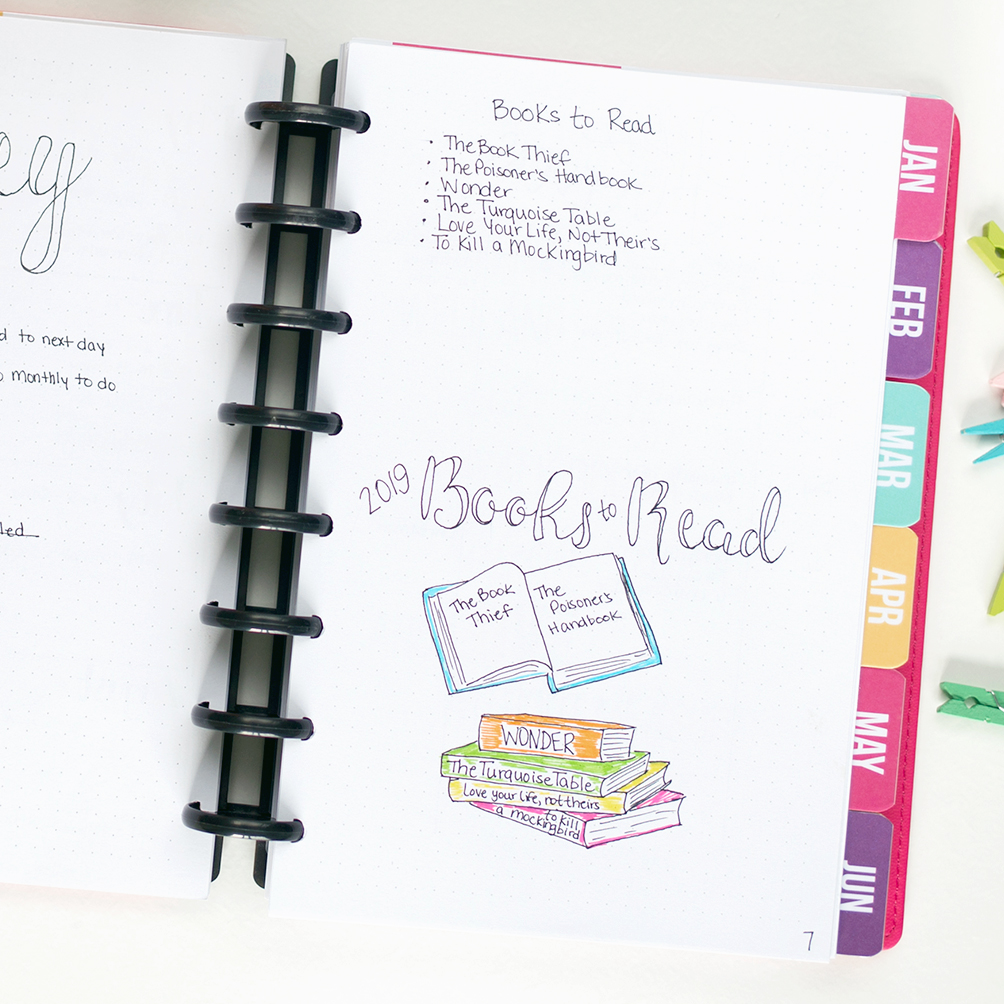 ey
d to next day
monthly to do
led
Books to Read
• The Book Thief
• The Poisoner's Handbook
• Wonder
• The Turquoise Table
• Love Your Life, Not Their's
• To Kill a Mockingbird
2019 Books to Read
The Book
Thief
The
Poisoner's
Handbook
WONDER
The Turquoise Table
Love your life, not theirs
to kill
a mockingbird
7
JAN
FEB
MAR
APR
MAY
JUN